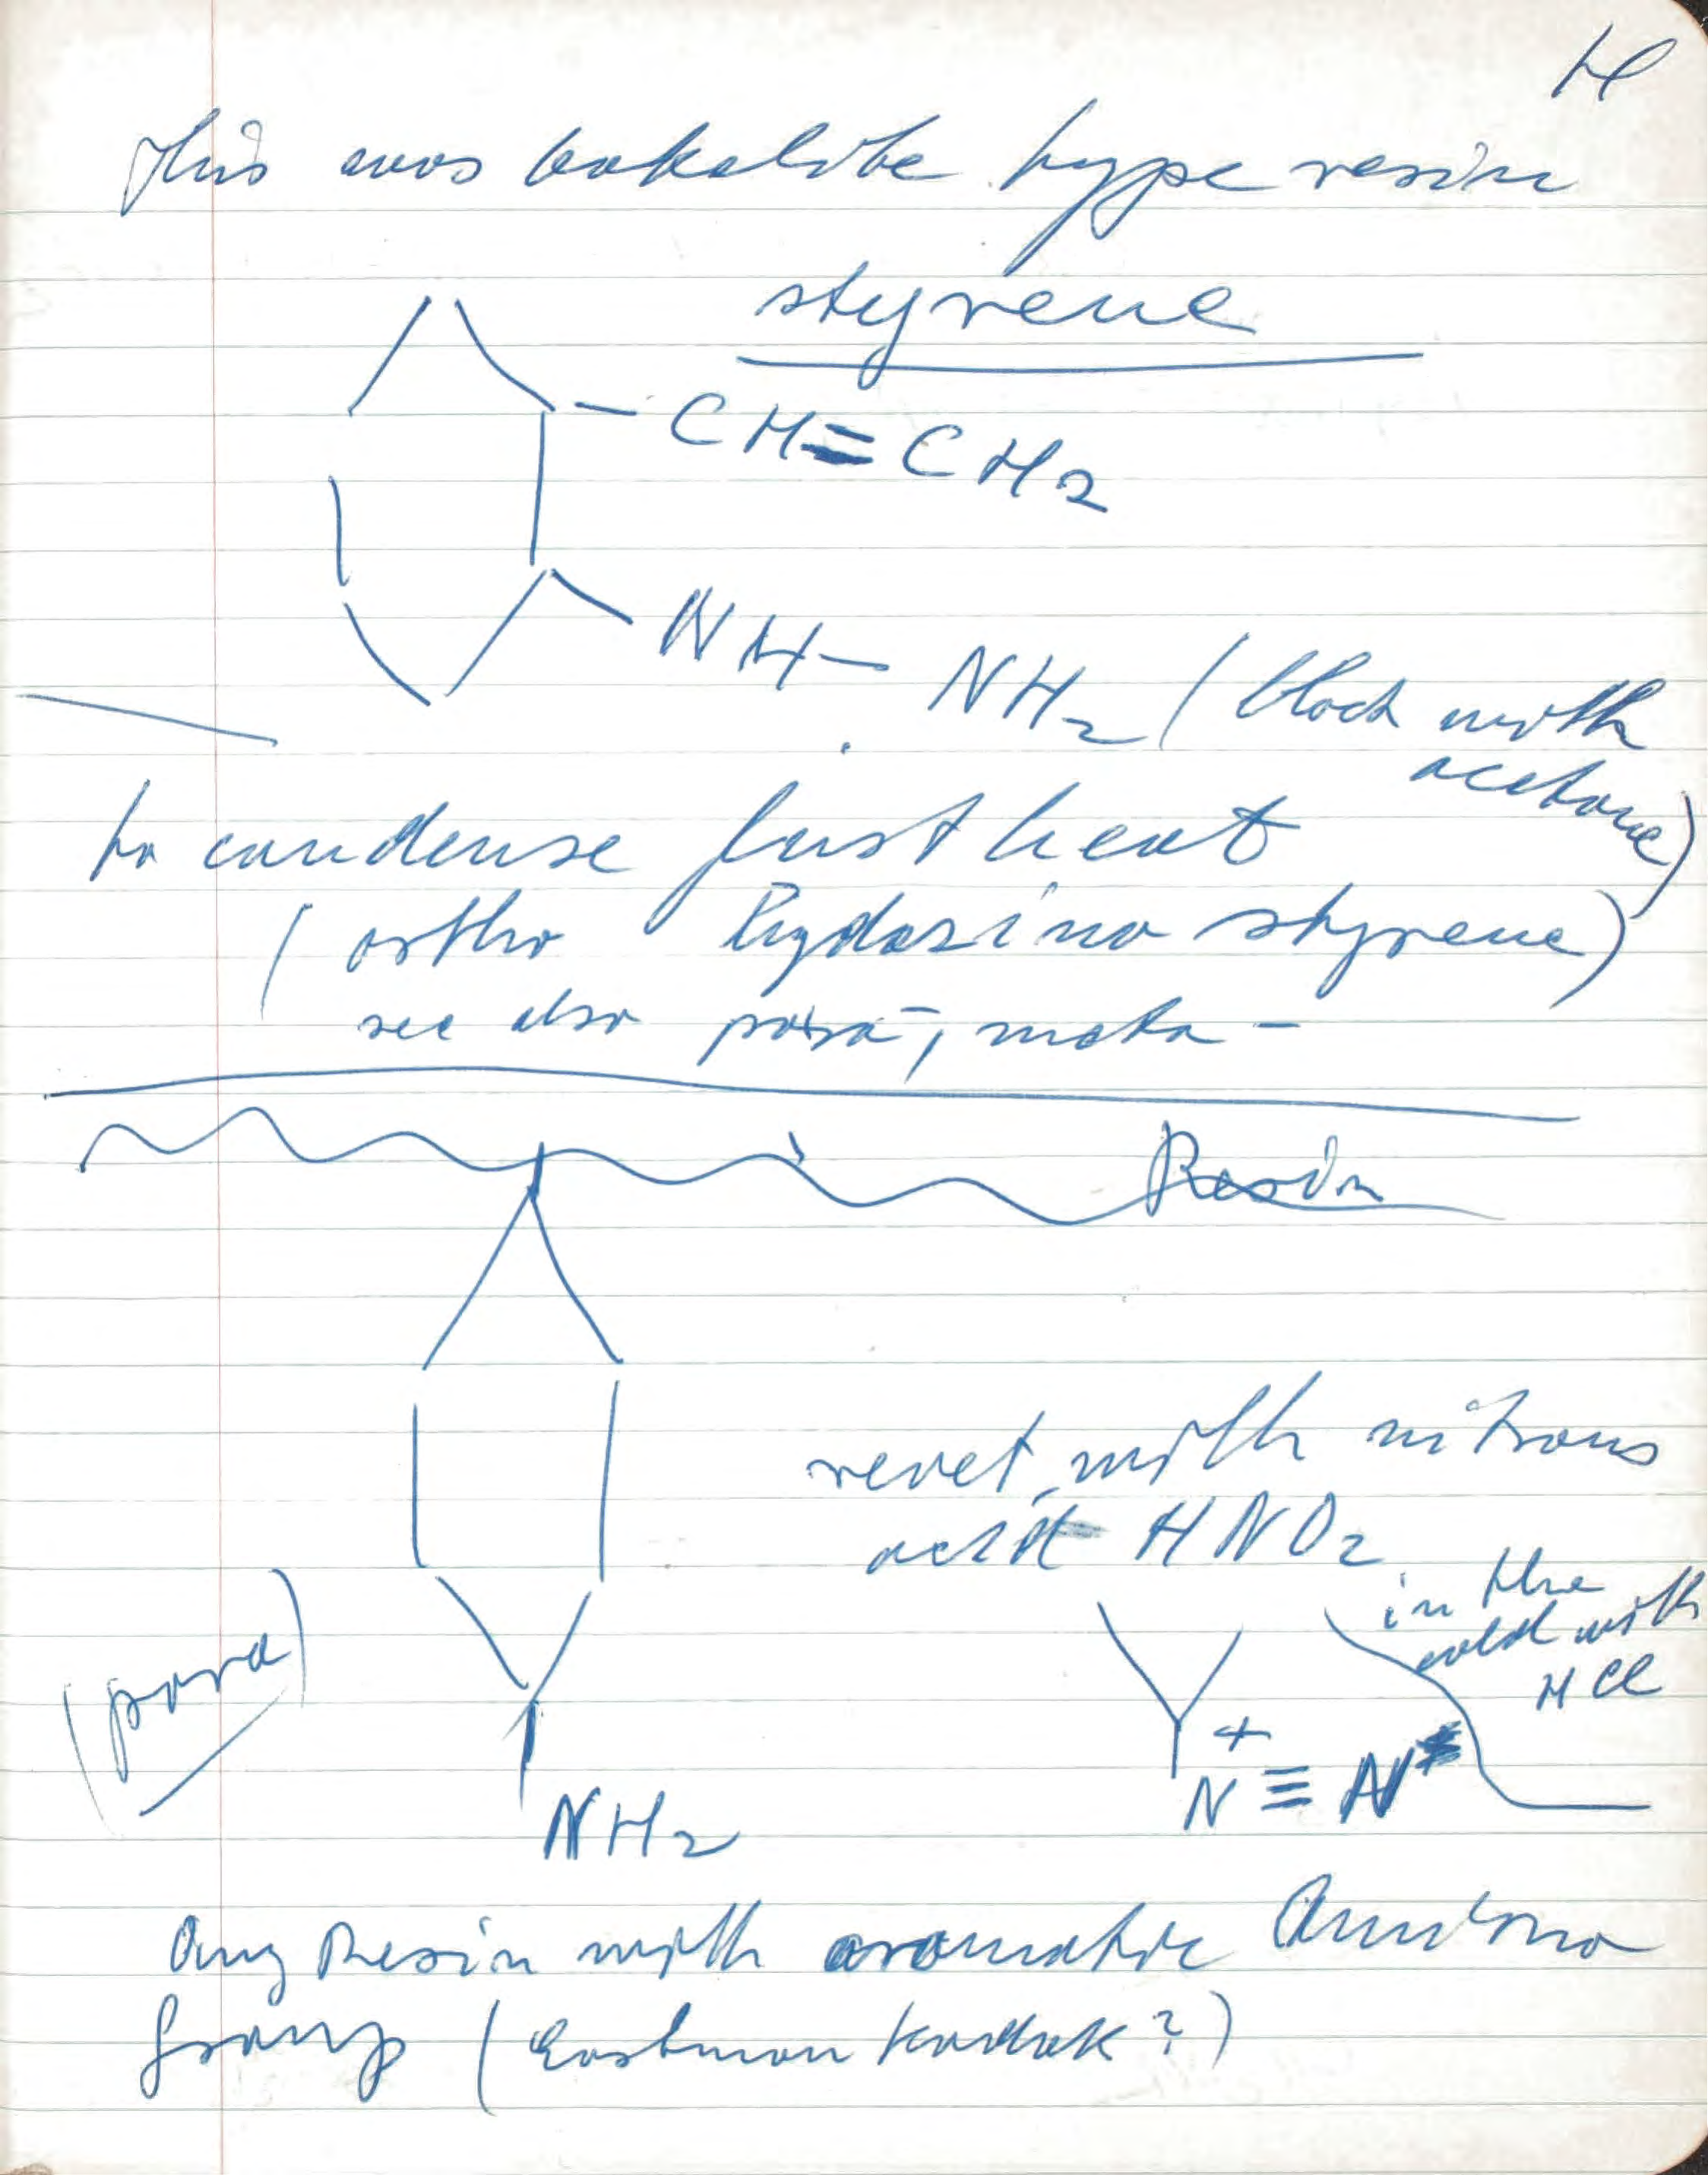 H
This was bakelite type resin
styrene
- CH=CH2
NH - NH2 (block with
acetone)
to condense just heat
(ortho hydrazino styrene)
see also para-, meta-
Resin
react with nitrous
acid HNO2
in the
cold with
HCl
(para)
+
N ≡ N
NH2
Any Resin with aromatic Amino
group (Eastman Kodak?)